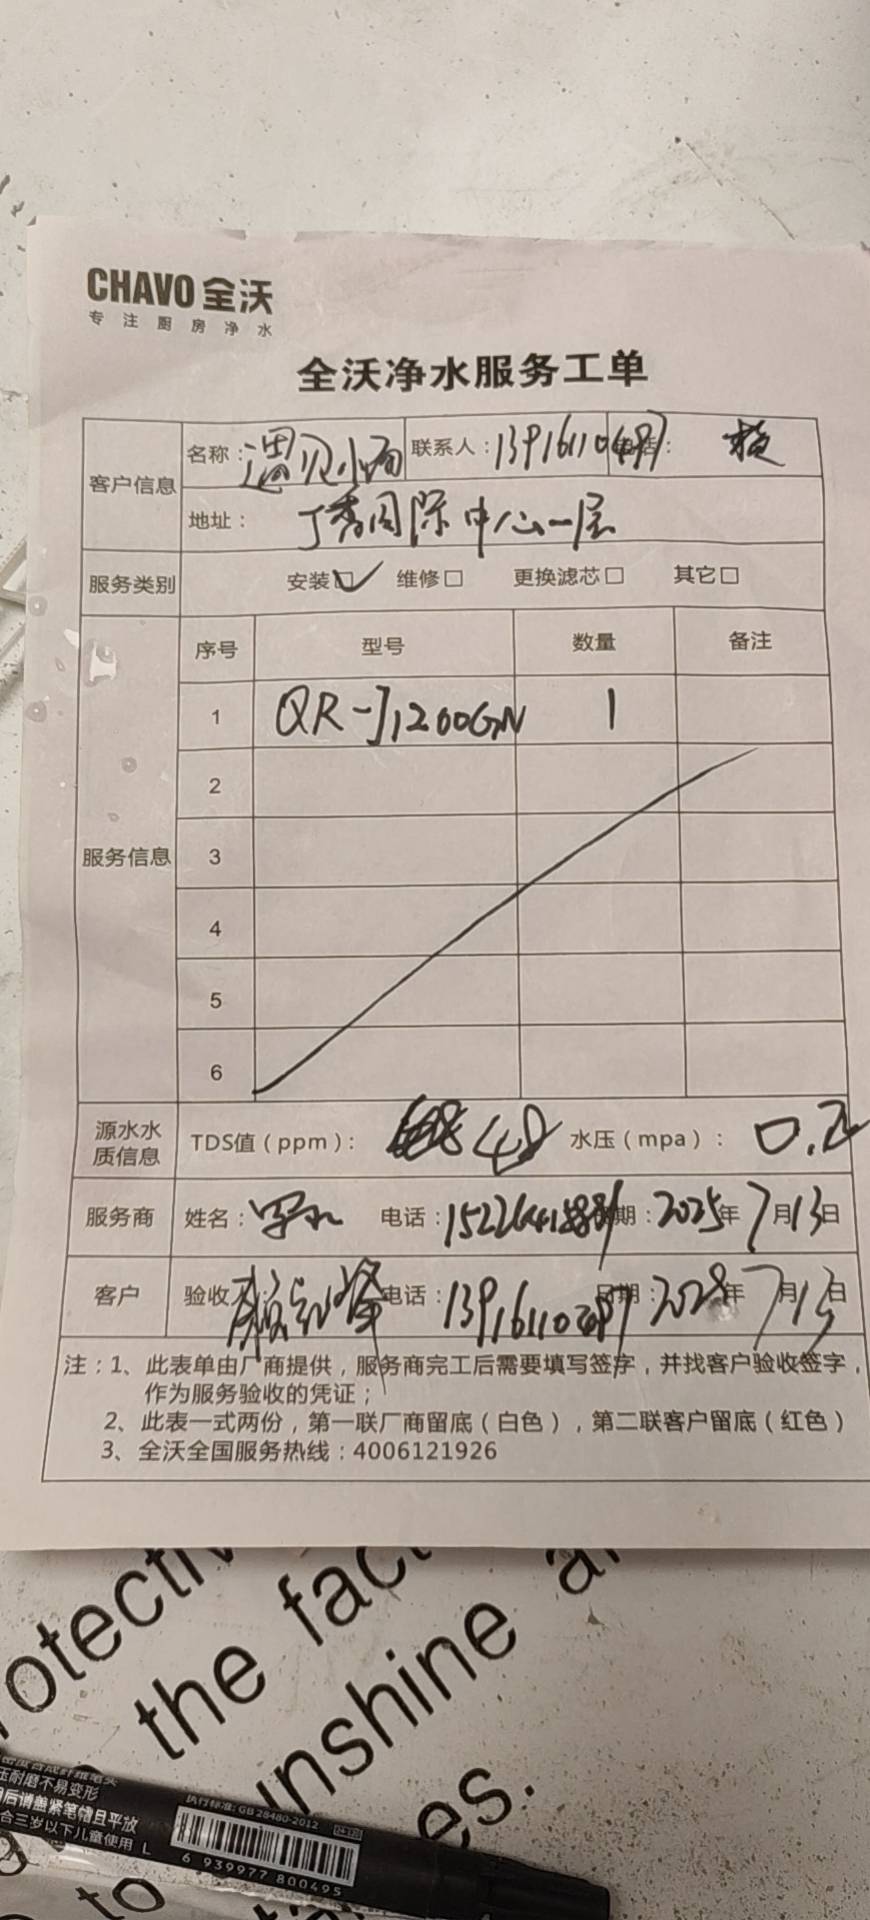 CHAVO 全沃
专注厨房净水
全沃净水服务工单
客户信息 名称：遇见小面 联系人：1391611 电话：
地址：丁香国际中心一层
服务类别 安装☑ 维修□ 更换滤芯□ 其它□
服务信息 序号 型号 数量 备注
1 QR-J1200GN 1
2
3
4
5
6
源水水质信息 TDS值（ppm）： 48 水压（mpa）： 0.2
服务商 姓名： 电话： 日期：2025年7月13日
客户 验收人 电话：1391611 日期：年7月13日
注：1、此表单由厂商提供，服务商完工后需要填写签字，并找客户验收签字，
作为服务验收的凭证；
2、此表一式两份，第一联厂商留底（白色），第二联客户留底（红色）
3、全沃全国服务热线：4006121926
the
sunshine
es.
to
压耐磨不易变形
后请盖紧笔帽且平放
合三岁以下儿童使用 L
执行标准：GB 28480-2012
6 939977 800495